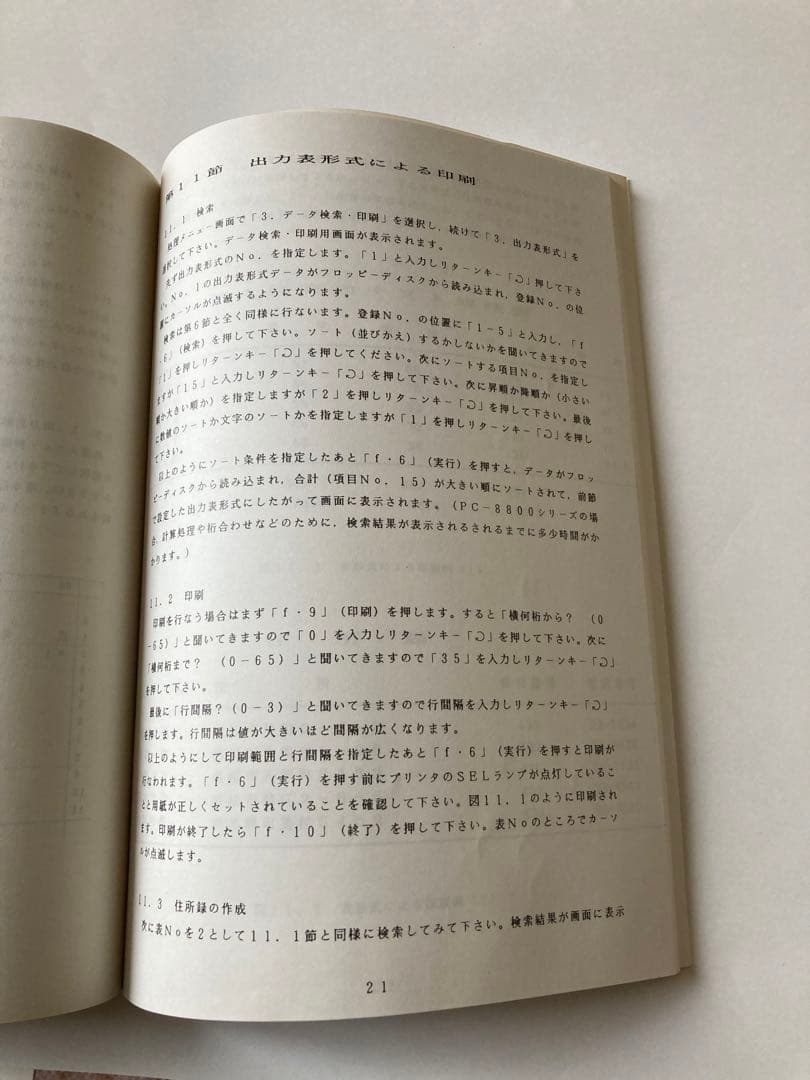 第11節　出力表形式による印刷
11.1　検索
処理メニュー画面で「3.データ検索・印刷」を選択し,続けて「3.出力表形式」を
選択して下さい。データ検索・印刷用画面が表示されます。
先ず出力表形式のNo.を指定します。「1」と入力しリターンキー「⊃」押して下さ
い。No.1の出力表形式データがフロッピーディスクから読み込まれ,登録No.の位
置にカーソルが点滅するようになります。
検索は第6節と全く同様に行ないます。登録No.の位置に「1-5」と入力し,「f
・6」(検索)を押して下さい。ソート(並びかえ)するかしないかを聞いてきますので
「1」を押しリターンキー「⊃」を押してください。次にソートする項目No.を指定し
ますが「15」と入力しリターンキー「⊃」を押して下さい。次に昇順か降順か(小さい
順か大きい順か)を指定しますが「2」を押しリターンキー「⊃」を押して下さい。最後
に数値のソートか文字のソートかを指定しますが「1」を押しリターンキー「⊃」を押し
て下さい。
以上のようにソート条件を指定したあと「f・6」(実行)を押すと,データがフロッ
ピーディスクから読み込まれ,合計(項目No.15)が大きい順にソートされて,前節
で設定した出力表形式にしたがって画面に表示されます。(PC-8800シリーズの場
合,計算処理や桁合わせなどのために,検索結果が表示されるされるまでに多少時間がか
かります。)
11.2　印刷
印刷を行なう場合はまず「f・9」(印刷)を押します。すると「横何桁から?　(0
-65)」と聞いてきますので「0」を入力しリターンキー「⊃」を押して下さい。次に
「横何桁まで?　(0-65)」と聞いてきますので「35」を入力しリターンキー「⊃」
を押して下さい。
最後に「行間隔?(0-3)」と聞いてきますので行間隔を入力しリターンキー「⊃」
を押します。行間隔は値が大きいほど間隔が広くなります。
以上のようにして印刷範囲と行間隔を指定したあと「f・6」(実行)を押すと印刷が
行なわれます。「f・6」(実行)を押す前にプリンタのSELランプが点灯しているこ
とと用紙が正しくセットされていることを確認して下さい。図11.1のように印刷され
ます。印刷が終了したら「f・10」(終了)を押して下さい。表Noのところでカーソ
ルが点滅します。
11.3　住所録の作成
次に表Noを2として11.1節と同様に検索してみて下さい。検索結果が画面に表示
21